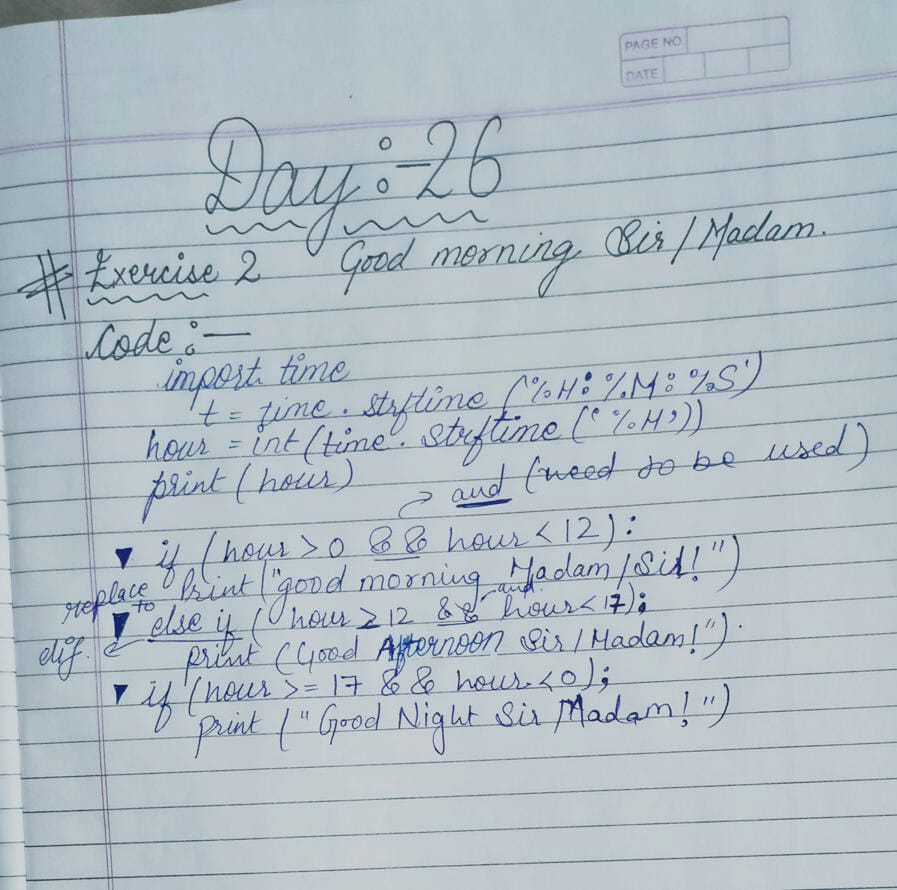 PAGE NO
DATE
Day :- 26
# Exercise 2 Good morning Sir / Madam.
Code :—
import time
t = time . strftime ('%H:%M:%S')
hour = int (time . strftime ('%H'))
print (hour)
and (need to be used)
▼ if (hour > 0 && hour < 12) :
print ("good morning Madam / Sir! ")
replace to and
▼ else if ( hour ≥ 12 && hour < 17) ;
elif. print (Good Afternoon Sir / Madam! ").
▼ if (hour >= 17 && hour < 0) ;
print ( " Good Night Sir Madam! ")